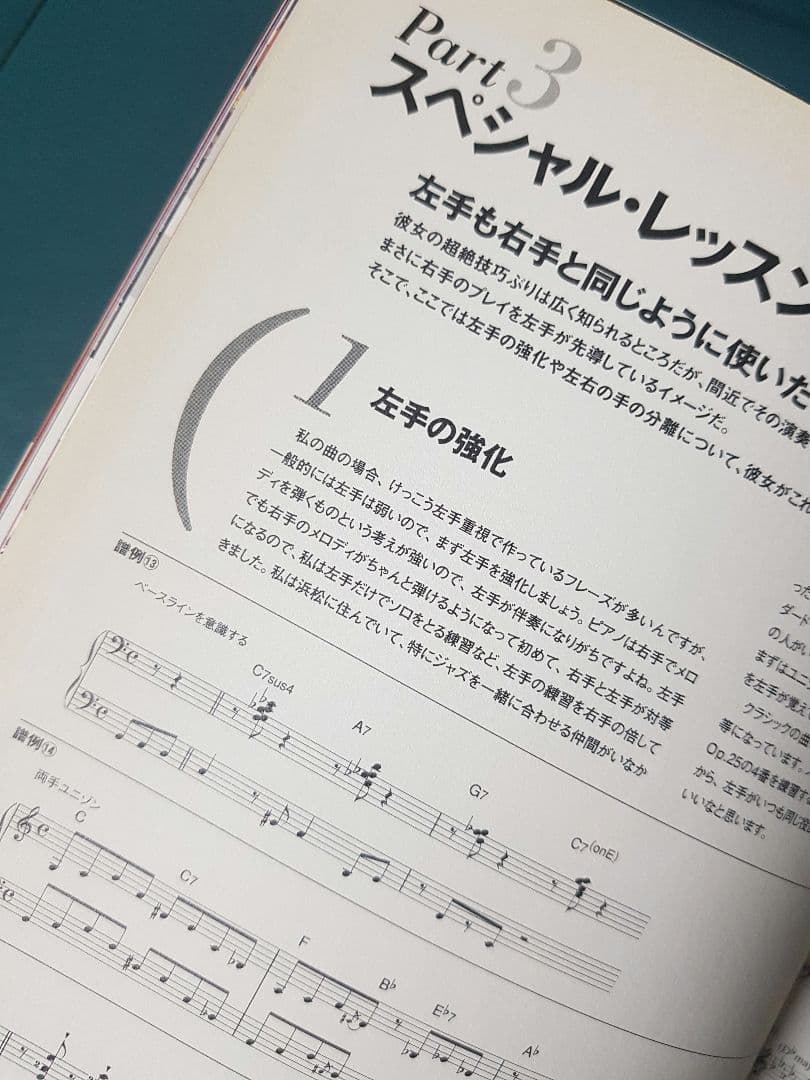 Part 3
スペシャル・レッスン
左手も右手と同じように使いた
彼女の超絶技巧ぶりは広く知られるところだが、間近でその演奏
まさに右手のプレイを左手が先導しているイメージだ。
そこで、ここでは左手の強化や左右の手の分離について、彼女がこれ
1 左手の強化
私の曲の場合、けっこう左手重視で作っているフレーズが多いんですが、
一般的には左手は弱いので、まず左手を強化しましょう。ピアノは右手でメロ
ディを弾くものという考えが強いので、左手が伴奏になりがちですよね。左手
でも右手のメロディがちゃんと弾けるようになって初めて、右手と左手が対等
になるので、私は左手だけでソロをとる練習など、左手の練習を右手の倍して
きました。私は浜松に住んでいて、特にジャズを一緒に合わせる仲間がいなか
った
ダード
の人がい
まずはユニ
を左手が覚え
クラシックの曲
等になっています。
Op.25の4番を練習す
から、左手がいつも同じ
いいなと思います。
譜例⑬
ベースラインを意識する
C7sus4
A7
G7
C7(onE)
譜例⑭
両手ユニゾン
C
C7
F
B♭
E♭7
A♭